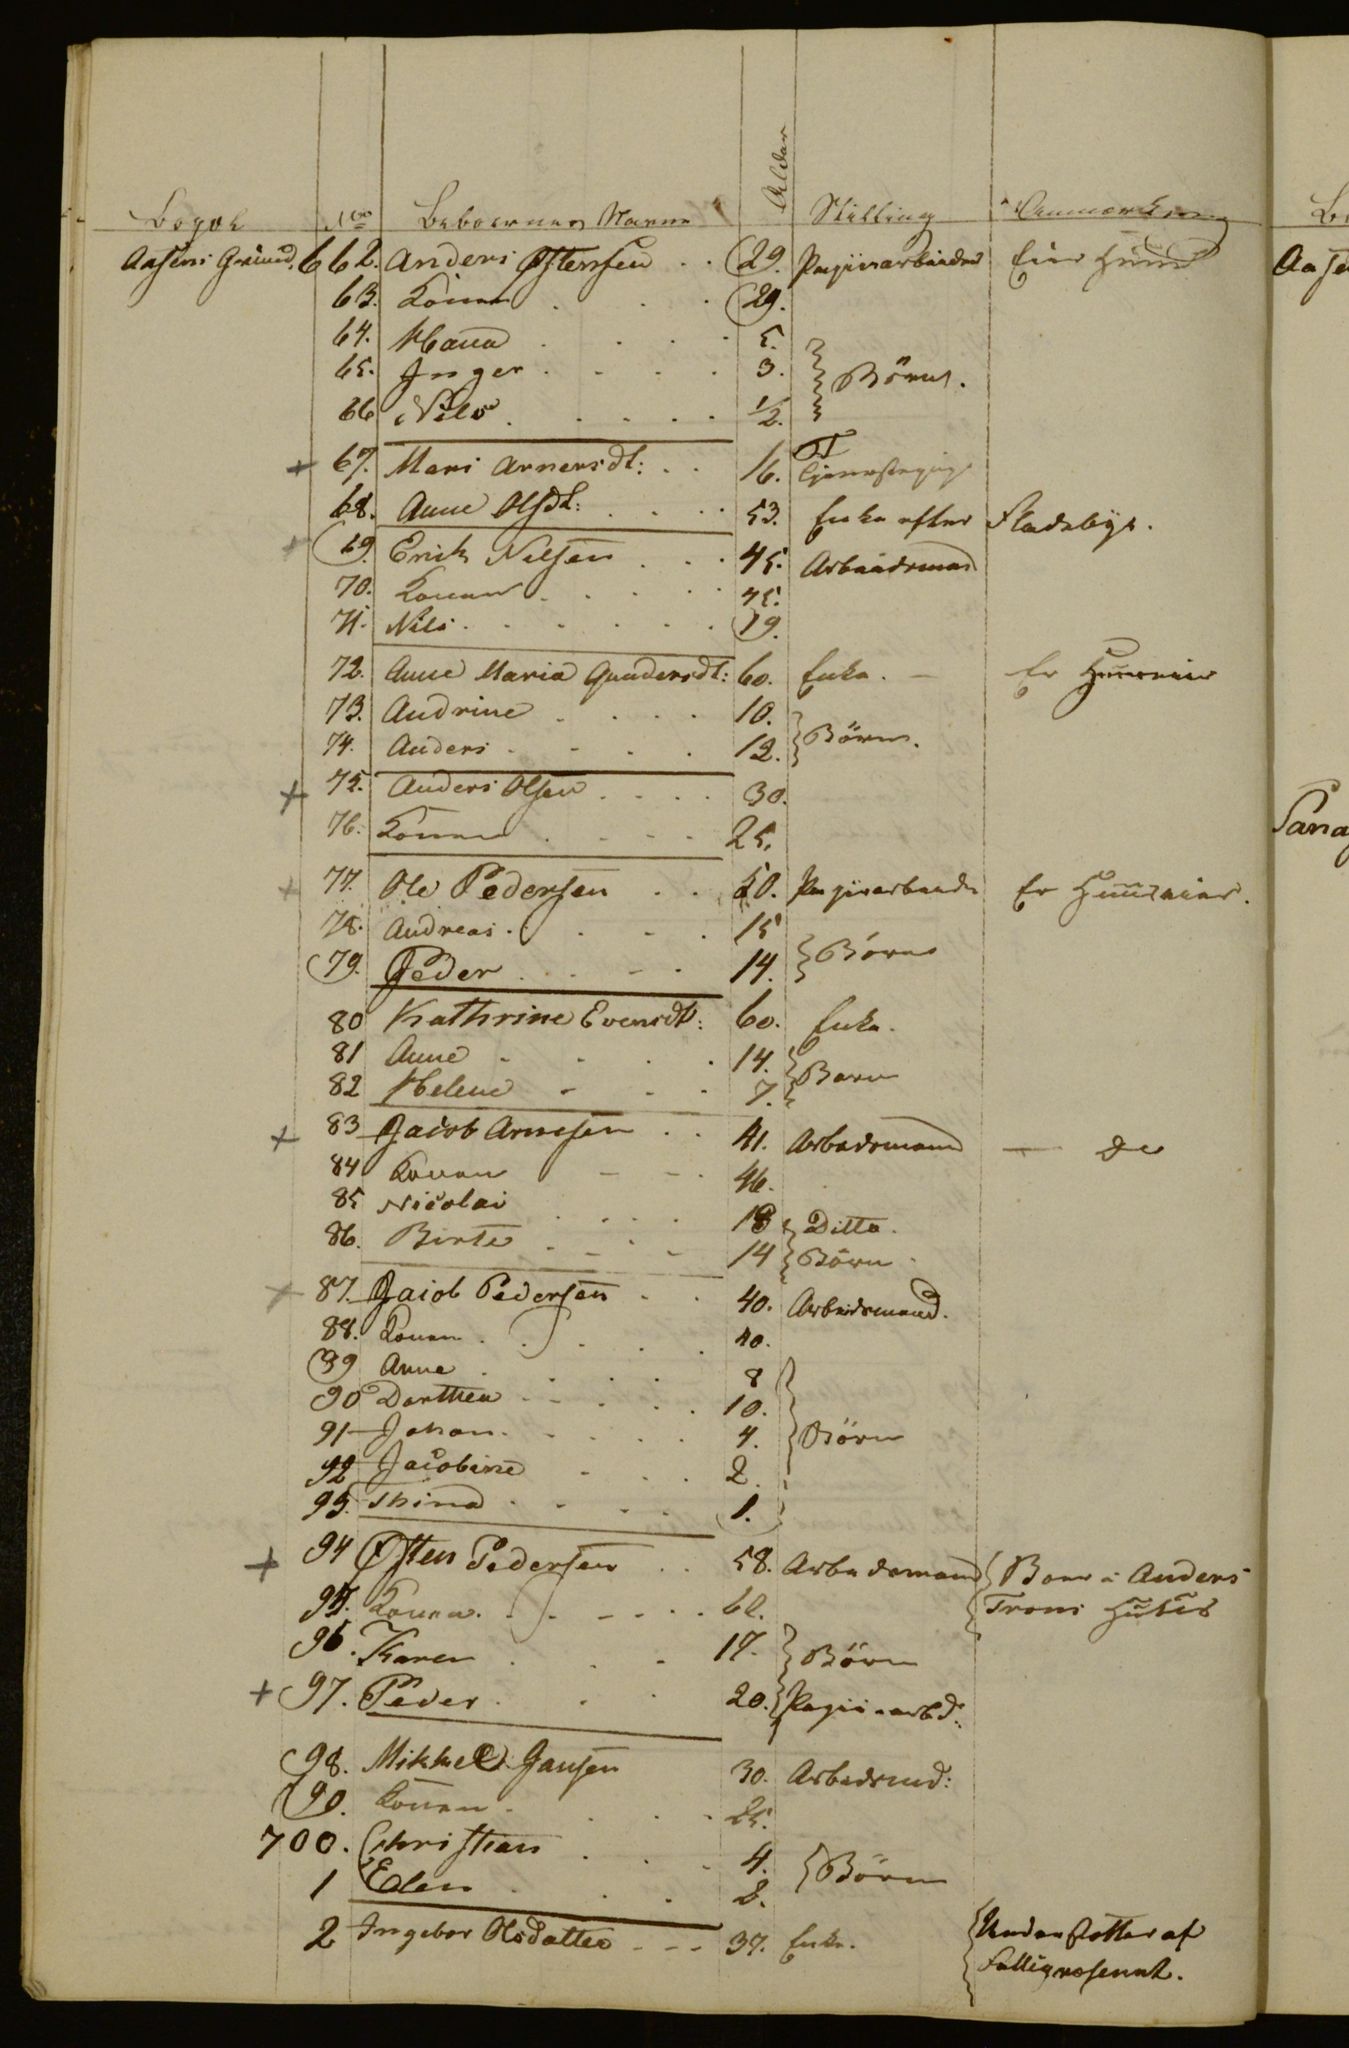 Bopæl No Beboernes Navne Alder Stilling Anmærkning
Aasens Grund. 662. Anders Østensen . . 29. Papiirarbeider Eier Huus
63. Konen . . . 29.
64. Hana . . . . 5.
65. Inger . . . . 3. } Börn.
66 Nils . . . . . 1/2.
+ 67. Mari Arnersdt: . . 16. Tjenestepige
68. Anne Olsdt: . . . . 53. Enke efter Fladebye.
+ 69. Erik Nilsen . . . 45. Arbeidsmand
70. Konen . . . . . 45.
71. Nils . . . . . . 19.
72. Anne Maria Gundersdt: 60. Enke. – Er Huuseier
73. Andrine . . . . 10.
74. Anders . . . . 12. } Börn.
+ 75. Anders Olsen . . . . 30.
76. Konen . . . . 25.
+ 77. Ole Pedersen . . 50. Papiirarbeider Er Huuseier.
78. Andreas . . . . 15
79. Peder . . . . 14. } Börn
80 Kathrine Evensdt: 60. Enke.
81 Anne . . . . 14.
82 Helene . . . 7. } Barn
+ 83 Jacob Arnesen . . 41. Arbedsmand — Do
84 Konen – – – 46.
85 Nicolai . . . . 18 Ditto.
86. Birte . . . . 14 } Börn
+ 87. Jacob Pedersen . . 40. Arbeidsmand.
88. Konen . . . . . 40.
89 Anne . . . . . 8
90 Dorthea . . . . . 10.
91 Johan . . . . . 4. } Börn
92 Jacobine . . . 2.
93. Thina . . . . 1.
+ 94 Østen Pedersen . . 58. Arbedsmand { Boer i Anders
95. Konen . . . . . . 62. Trons Huus
96. Karen . . . 17. } Börn
+ 97. Peder . . . 20. Papiirarbd:
98. Mikkel Jansen 30. Arbedsmd:
99. Konen . . . . 25.
700. Christian . . . 4.
1 Elen . . . . 2. } Börn
2 Ingebor Olsdatter – – – 37. Enke. { Understøttes af
Fattigvæsenet.
Aase